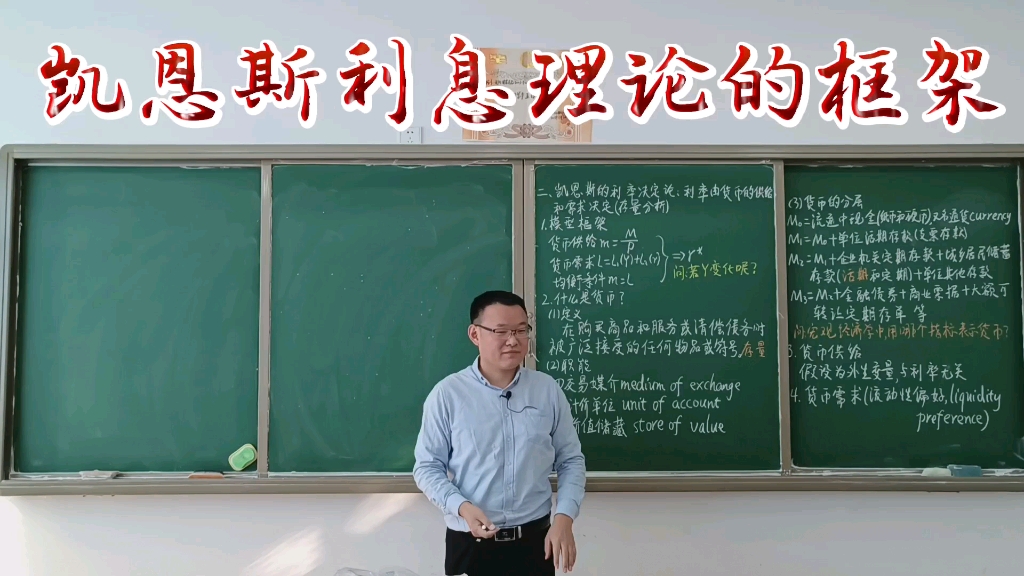 凯恩斯利息理论的框架
二、凯恩斯的利率决定论:利率由货币的供给
和需求决定(存量分析)
1.模型框架
货币供给m=M/P
货币需求L=L₁(Y)+L₂(r)
均衡条件m=L
⇒r*
问:若Y变化呢?
2.什么是货币?
(1)定义
在购买商品和服务或清偿债务时
被广泛接受的任何物品或符号,存量
(2)职能
交易媒介medium of exchange
计价单位 unit of account
价值储藏 store of value
(3)货币的分层
M₀=流通中现金(纸币和硬币)又名通货currency
M₁=M₀+单位活期存款(支票存款)
M₂=M₁+企业机关定期存款+城乡居民储蓄
存款(活期和定期)+单位其他存款
M₃=M₂+金融债券+商业票据+大额可
转让定期存单 等
问:宏观经济学中用哪个指标表示货币?
3.货币供给
假设为外生变量,与利率无关
4.货币需求(流动性偏好,liquidity
preference)